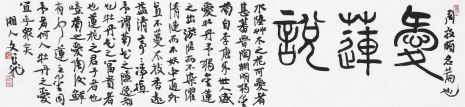 周敦頤名篇也
愛蓮說
水陸艸木之花可愛者
甚蕃晉陶淵明獨愛
菊自李唐來世人盛
愛牡丹予獨愛蓮
之出淤泥而不染濯
清漣而不妖中通外
直不蔓不枝香遠
益清亭亭淨植
予謂菊花之隱逸
者也牡丹花之富貴者
也蓮花之君子者也
噫菊之愛陶後鮮
有聞蓮之愛同
予者何人牡丹之愛
宜乎眾矣
湘人